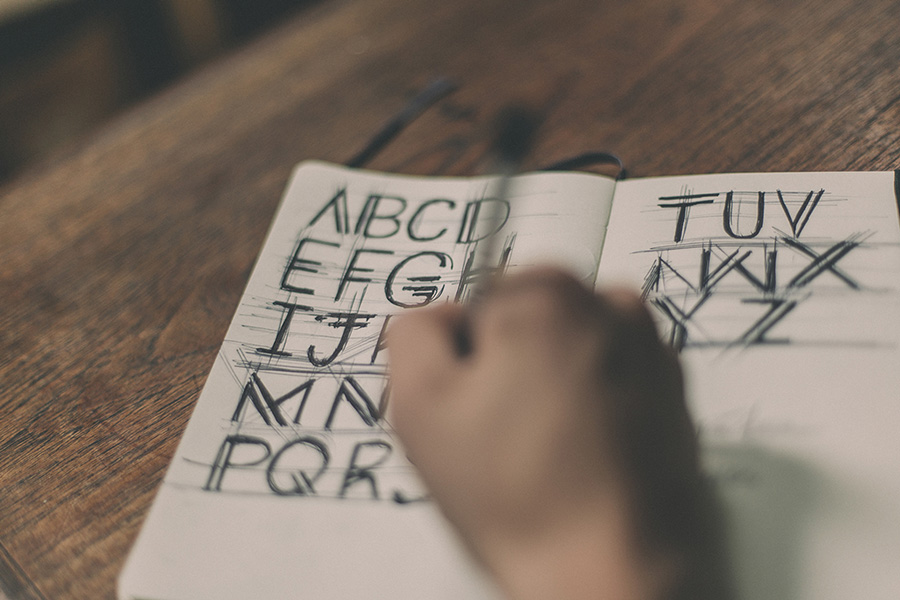 ABCD
EFGH
IJ
MN
PQR
TUV
WX
YZ